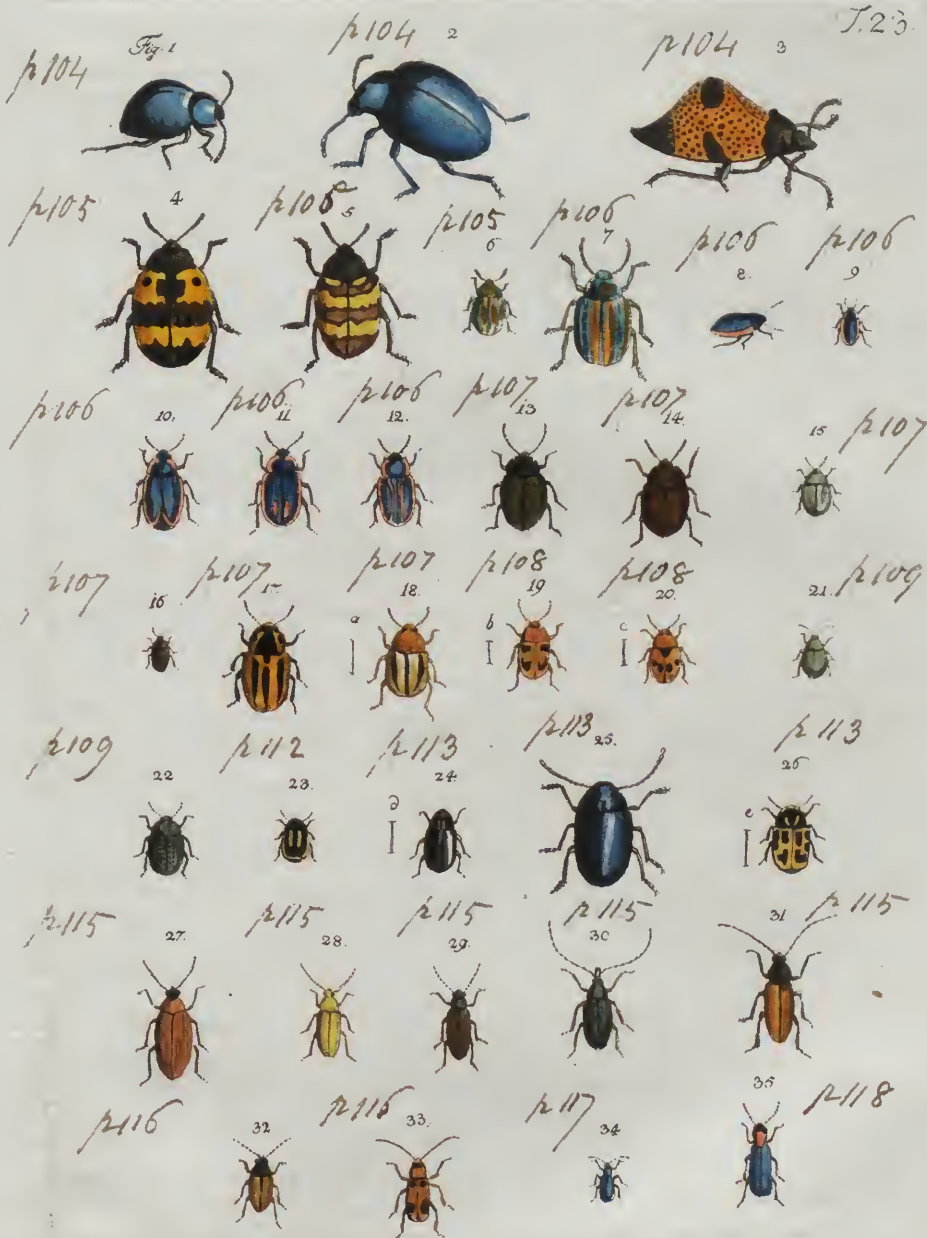 T.23.
p104 Fig. 1 p104 2 p104 3
p105 4 p106 5 p105 6 p106 7 p106 8. p106 9
p106 10. p106 11 p106 12. p107 13 p107 14. 15 p107
p107 16 p107 17. a p107 18. b p108 19 c p108 20. 21. p109
p109 22 p112 23. d p113 24. p113 25. e 26 p113
p115 27. p115 28. p115 29. p115 30 31 p115
p116 32 p116 33. p117 34 35 p118